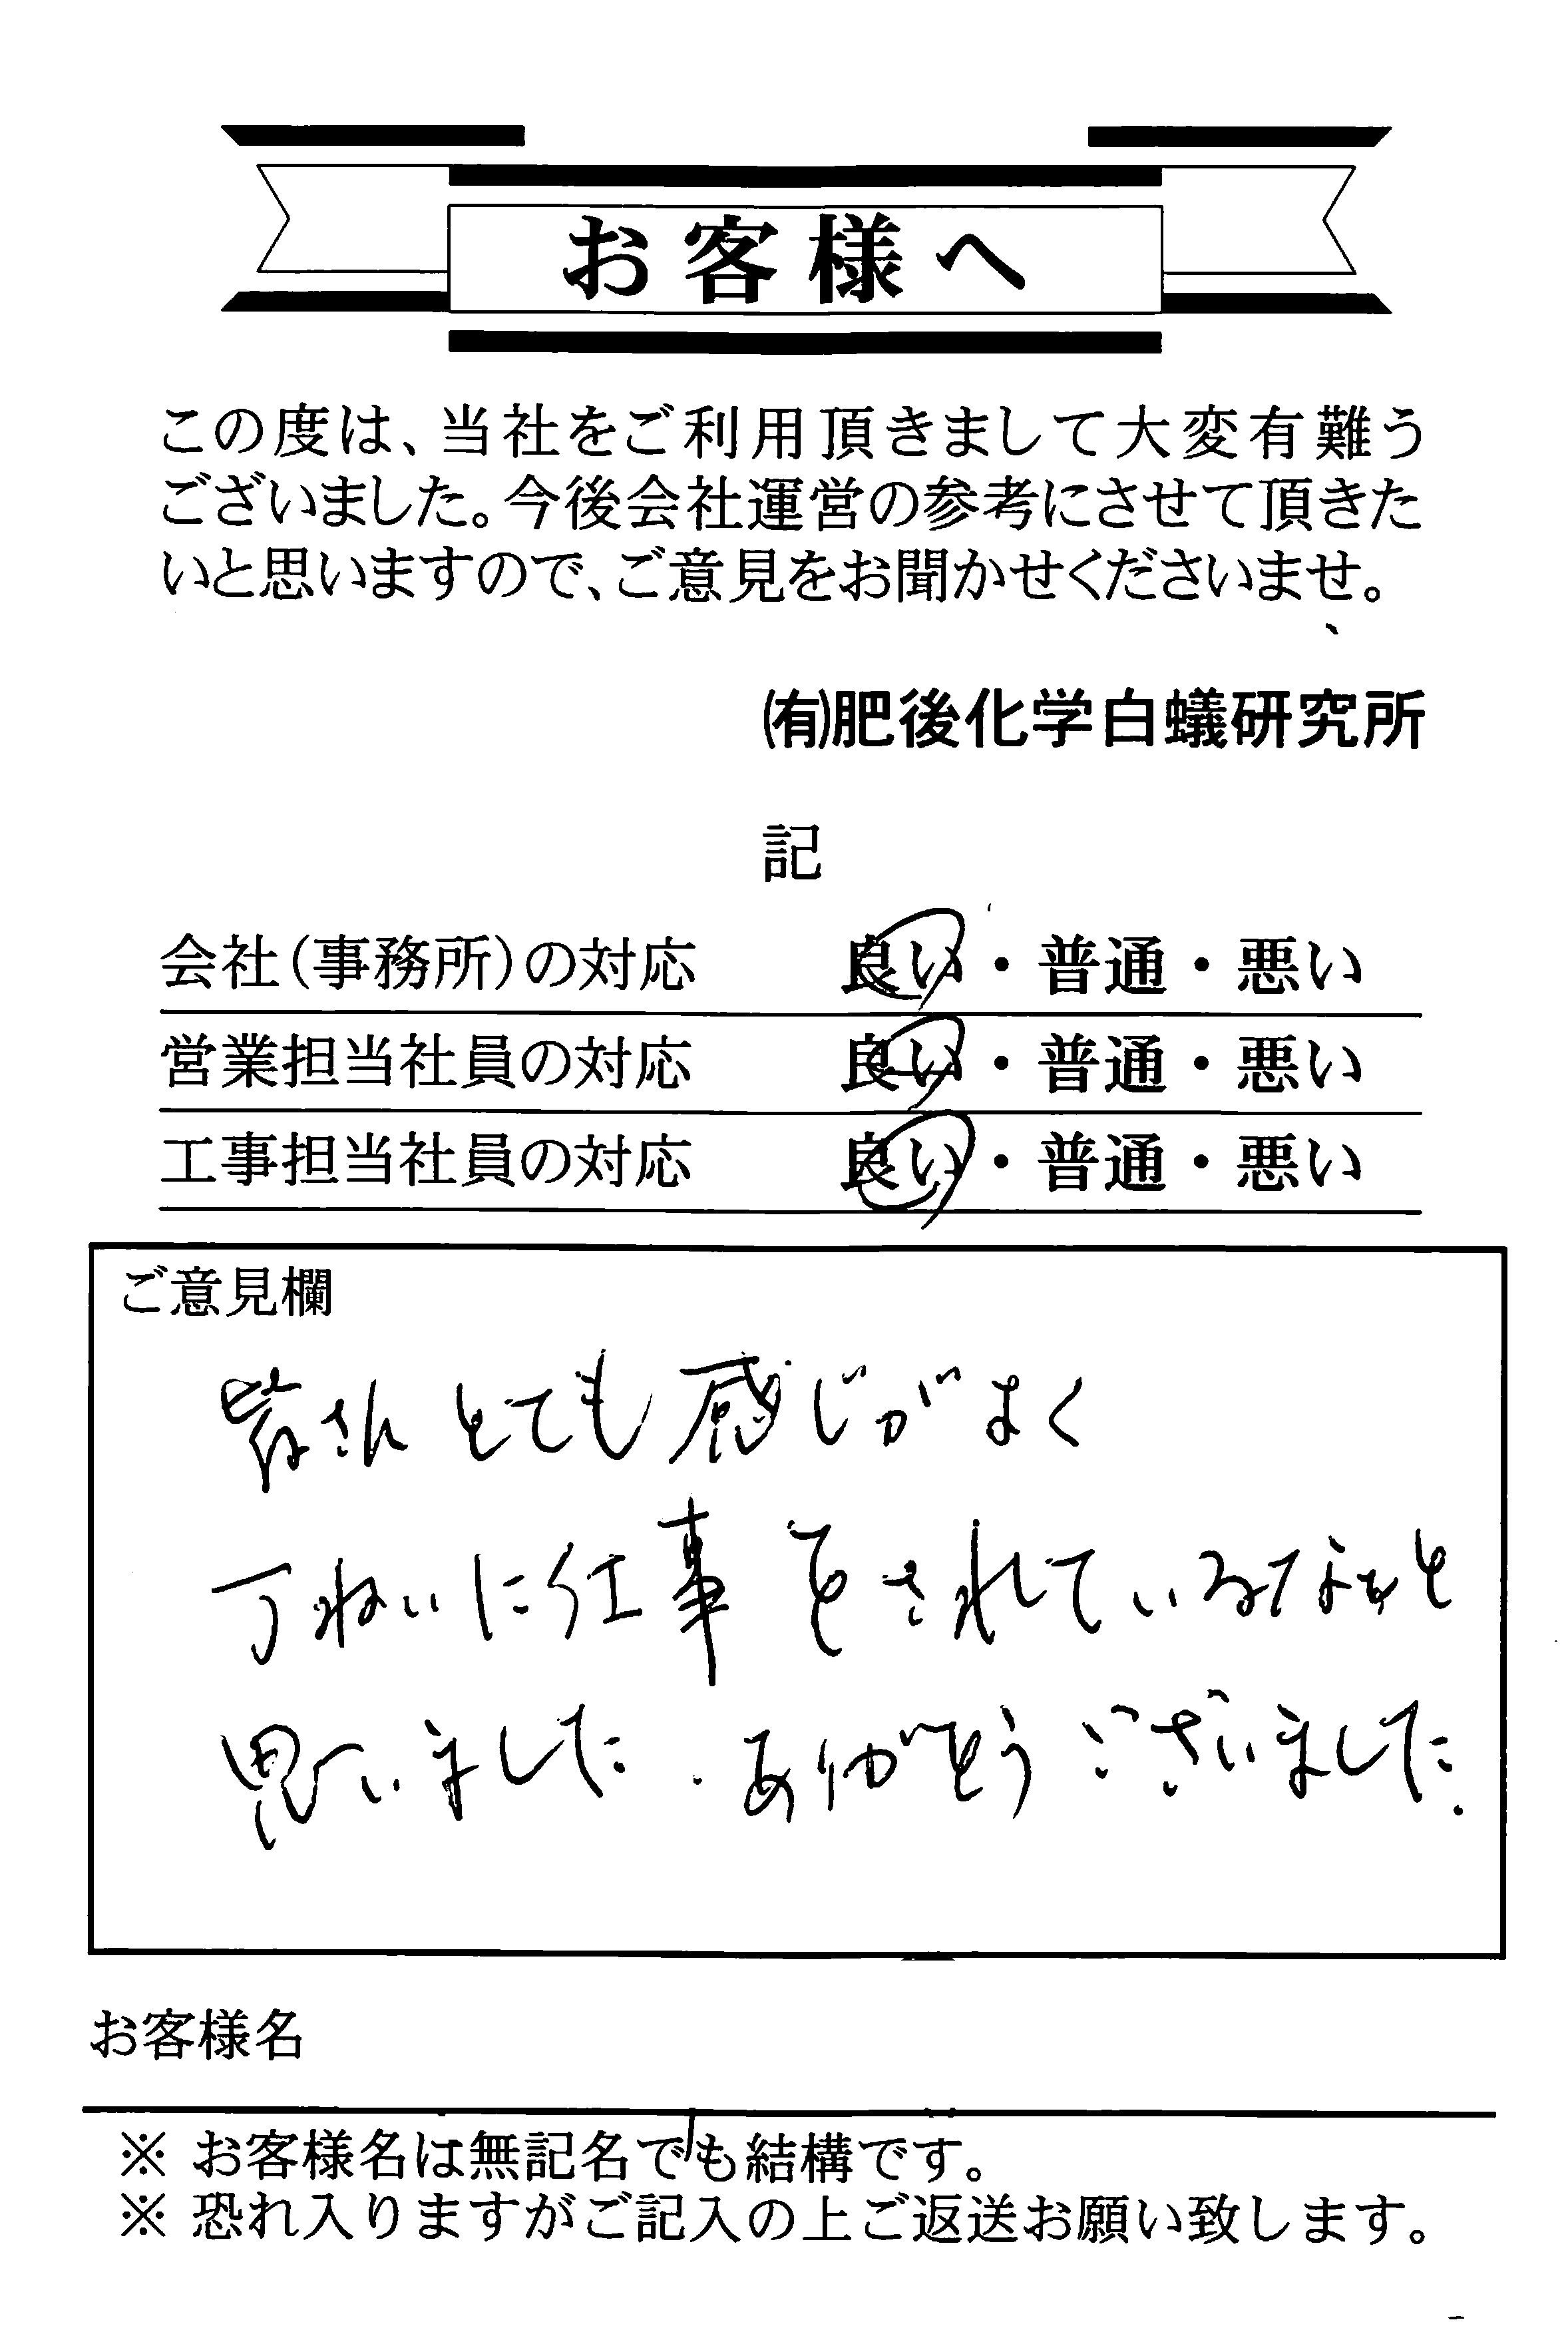 お客様へ
この度は、当社をご利用頂きまして大変有難う
ございました。今後会社運営の参考にさせて頂きた
いと思いますので、ご意見をお聞かせくださいませ。
㈲肥後化学白蟻研究所
記
会社(事務所)の対応 良い・普通・悪い
営業担当社員の対応 良い・普通・悪い
工事担当社員の対応 良い・普通・悪い
ご意見欄
皆さんとても感じがよく
丁ねいに仕事をされているなぁと
思いました。ありがとうございました。
お客様名
※ お客様名は無記名でも結構です。
※ 恐れ入りますがご記入の上ご返送お願い致します。